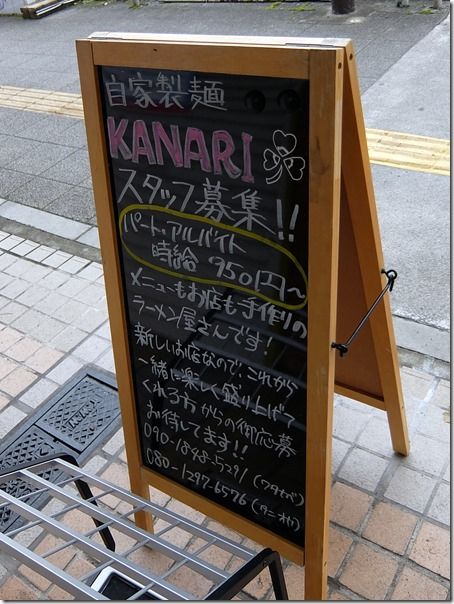 自家製麺
KANARI
スタッフ募集!!
パート・アルバイト
時給 950円〜
メニューもお店も手作りの
ラーメン屋さんです!
新しいお店なので、これから
一緒に楽しく盛り上げて
くれる方からの御応募
お待てします!!
090-1848-5291
080-1297-6576